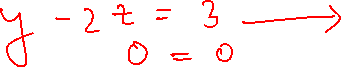 y - 2z = 3 ⟶
0 = 0